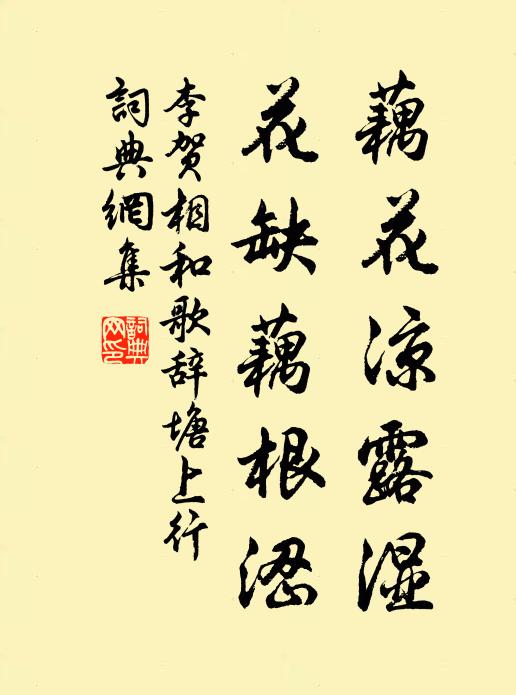 藕花凉露湿
花缺藕根涩
李贺相和歌辞塘上行
詞典網集
詞典网印